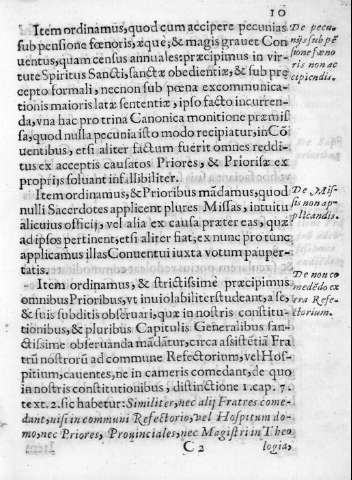 10
Item ordinamus, quod cum accipere pecunias
sub pensione fœnoris, æque, & magis grauet Con
uentus, quam census annales: præcipimus in vir-
tute Spiritus Sancti, sanctæ obedientiæ, & sub præ
cepto formali, necnon sub pœna excommunica-
tionis maioris latæ sententiæ, ipso facto incurren-
da, vna hac pro trina Canonica monitione præmis
sa, quod nulla pecunia isto modo recipiatur, in Cō
uentibus, etsi aliter factum fuerit omnes reddi-
tus ex acceptis causatos Priores, & Priorisæ ex
proprijs soluant infallibiliter.
De pecu-
nijs sub pē
sione fœno
ris non ac
cipiendis.
Item ordinamus, & Prioribus mādamus, quod
nulli Sacerdotes applicent plures Missas, intuitu
alicuius officij, vel alia ex causa præter eas, quæ
ad ipsos pertinent, etsi aliter fiat, ex nunc pro tunc
applicamus illas Conuentui iuxta votum pauper-
tatis.
De Mis-
sis non ap-
plicandis.
Item ordinamus, & strictissimè præcipimus
omnibus Prioribus, vt inuiolabiliter studeant, a se,
& suis subditis obseruari, quæ in nostris constitu-
tionibus, & pluribus Capitulis Generalibus san-
ctissime obseruanda mādātur, circa assistētiā Fra
trū nostrorū ad commune Refectorium, vel Hos-
pitium, cauentes, ne in cameris comedant, de quo
in nostris constitutionibus, distinctione 1. cap. 7.
text. 2. sic habetur: Similiter, nec alij Fratres come-
dant, nisi in communi Refectorio, vel Hospitum do-
mo, nec Priores, Prouinciales, nec Magistri in Theo
De non co
medēdo ex
tra Refe-
ctorium.
C 2 logia,